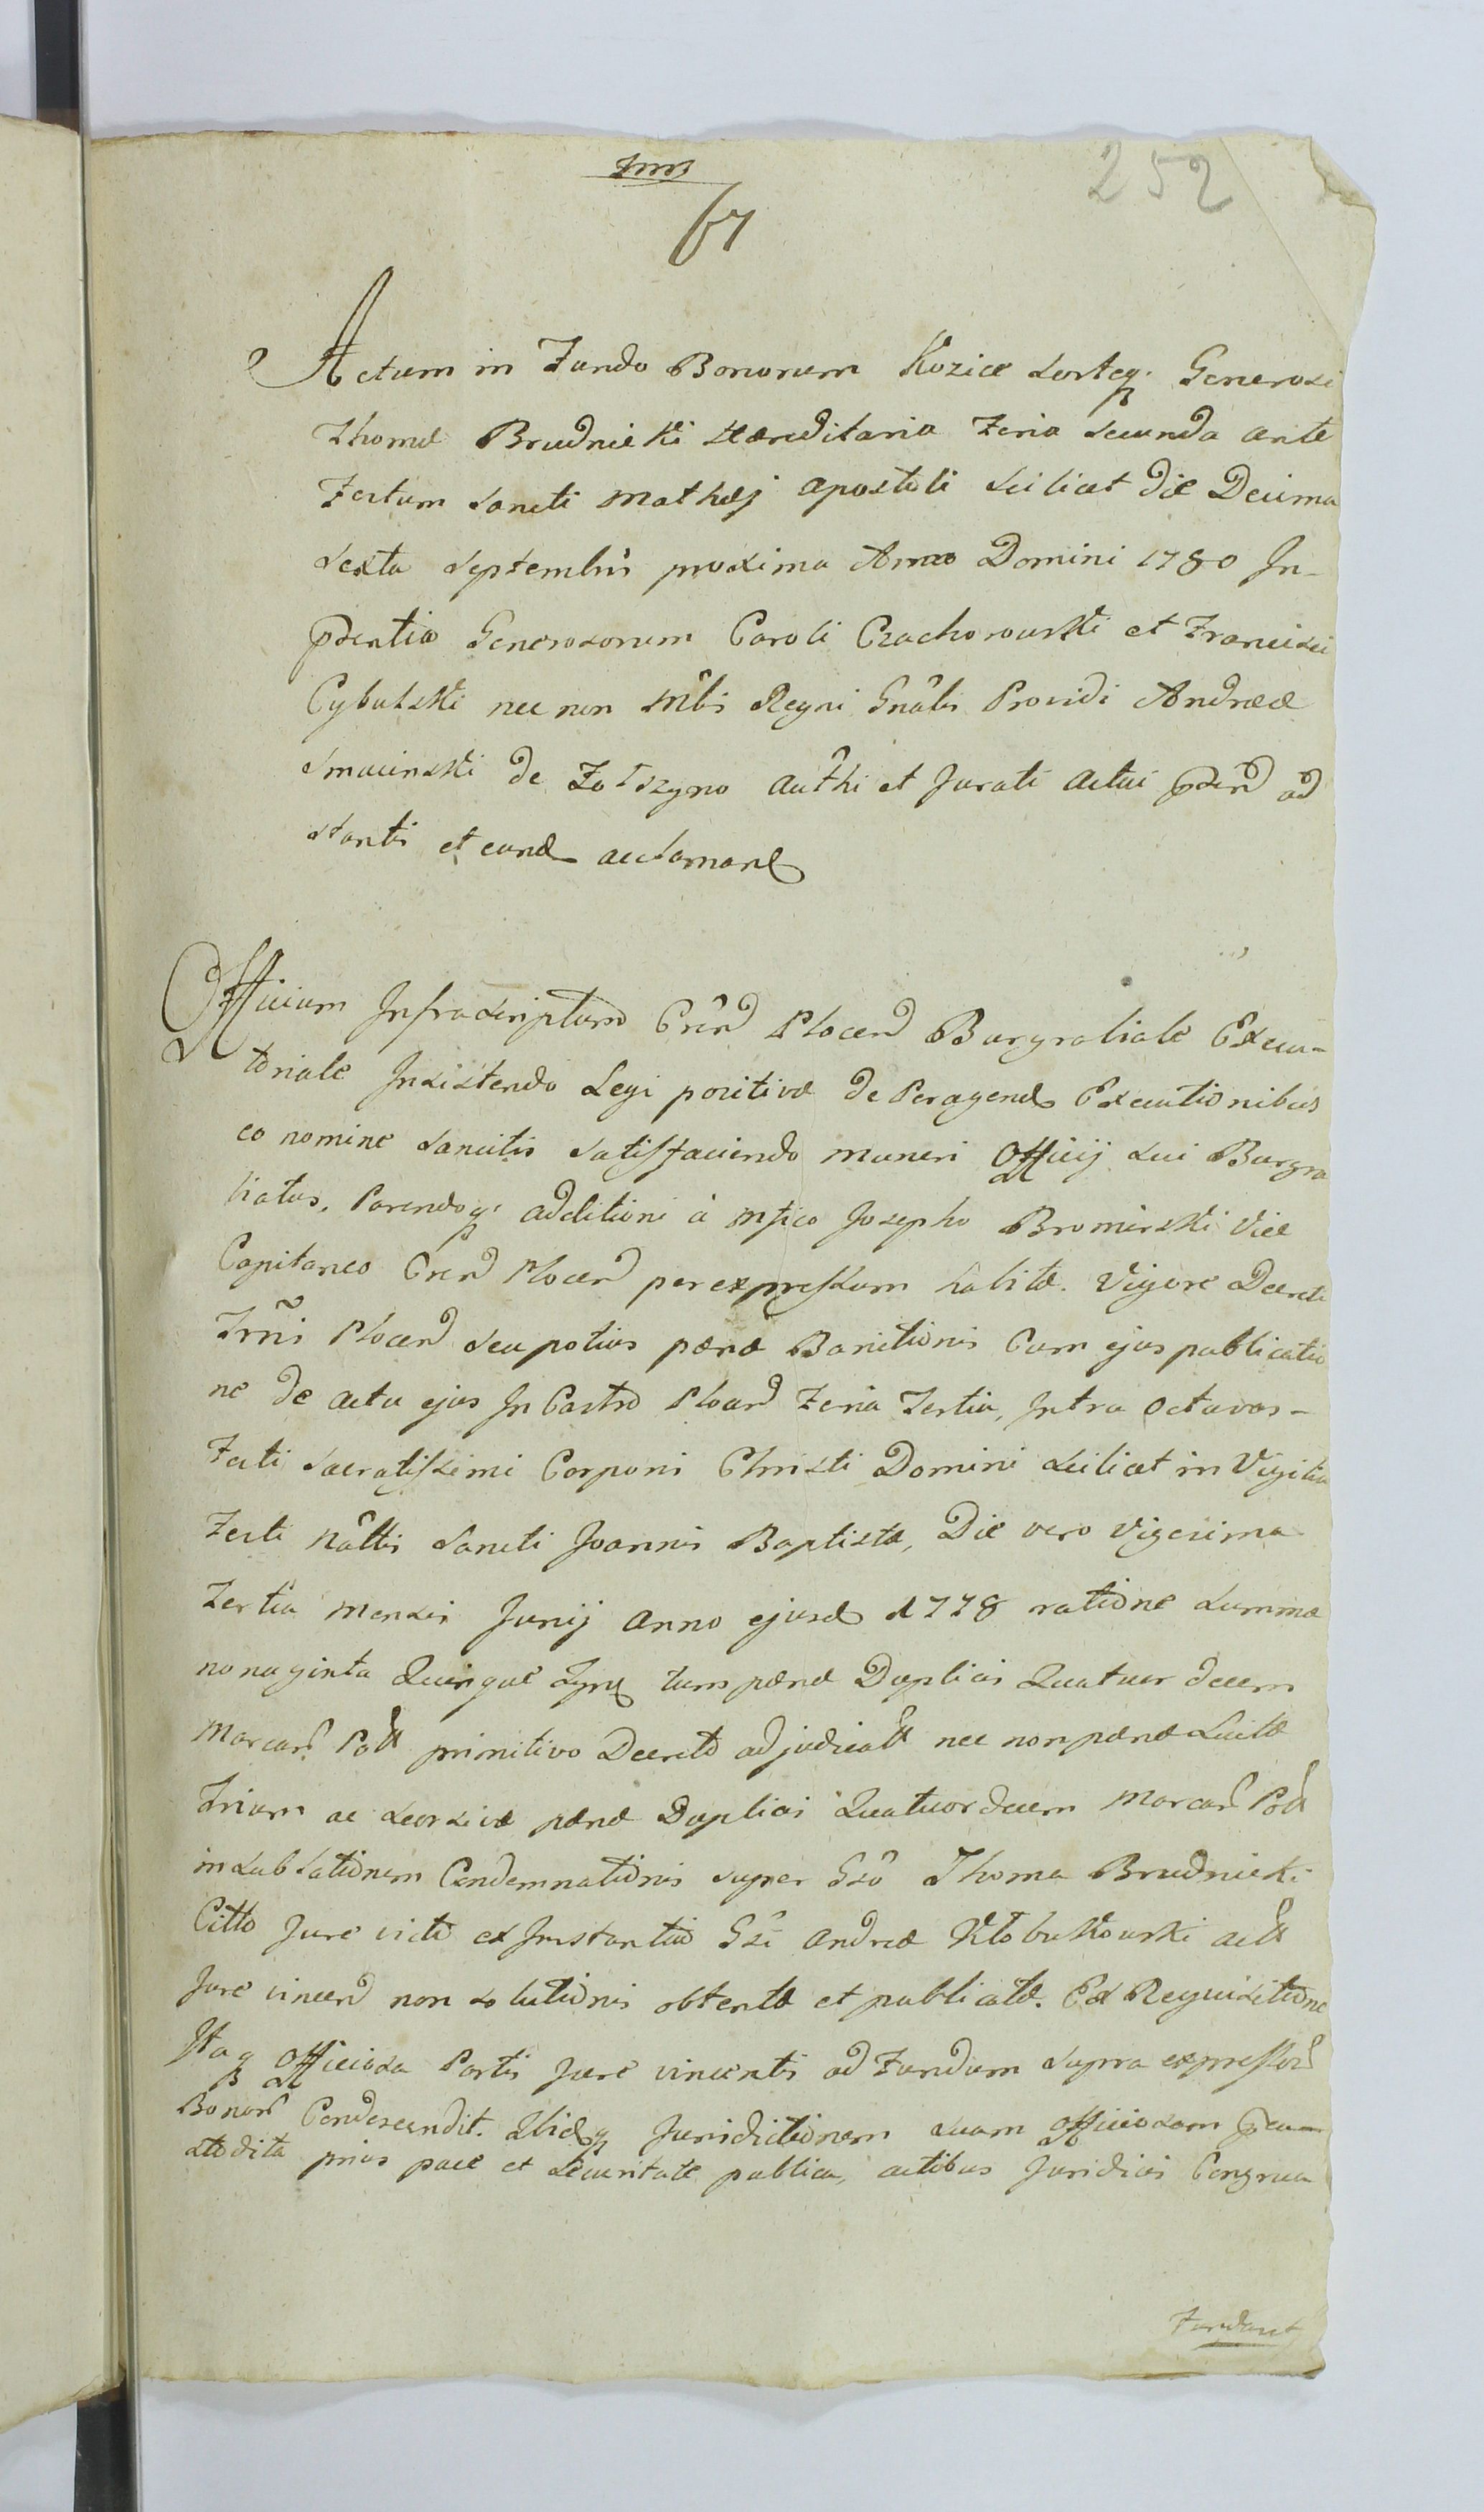 252
67
Actum in Fundo Bonorum Kozice Sorteq. Generosi
Thomæ Brudnicki Hæreditaria Feria Secunda ante
Festum Sancti Mathæj Apostoli Scilicet die Decima
Sexta Septembris proxima Anno Domini 1780 In
pdentia Generosorum Caroli Czachorowski et Francisci
Cybulski nec non Mtlis Regni Gnalis Providi Andreæ
Smacinski de authi et Jurati actui pden ad
stantis et eund acclamand
Officium Infrascriptum Cren Plocen Burgrabiale Execu-
toriale Insistendo Legi positivæ de Peragend Executionibus
eo nomine sancitis satisfaciendo muneri Officij sui Burgra
biatus, Parendoq. additioni à Mfico Josepho Bromirski Vice
Capitaneo Cren Plocen per expressum habitæ. Vigore Decreti
Trni Plocen seu potius pænæ Banitionis Cum ejus publicatio
ne de actu ejus In Castro Plocen Feria Tertia, Intra Octavas
Festi Sacratissimi Corporis Christi Domini scilicet in Vigilia
Festi Nattis Sancti Joannis Baptistæ, Die vero Vigesima
Tertia mensis Junij anno ejusd 1778 ratione summæ
nonaginta Quinque Tynf tum pænæ Duplicis Quatuor decem
Marcar. Poll primitivo Decreto adjudicatt nec non pænæ Luitæ
Trium ac seorsivæ pænæ Duplicis Quatuordecem Marcar Poll
in sublationem Condemnationis super Gso Thoma Brudnicki
Citto Jure victo ex Instantia Gsi Andreæ Kłobukowski actt
Jure vincen non solutionis obtentæ et publicatæ. Ex Requisitione
Itaq Officiosa Partis Jure vincentis ad Fundum supra expressor
Bonor Condescendit. Ibidq Jurisdictionem suam officiosam pcu-
stodita prius pace et securitate publica, actibus Juridicis Congrua
Fundavit